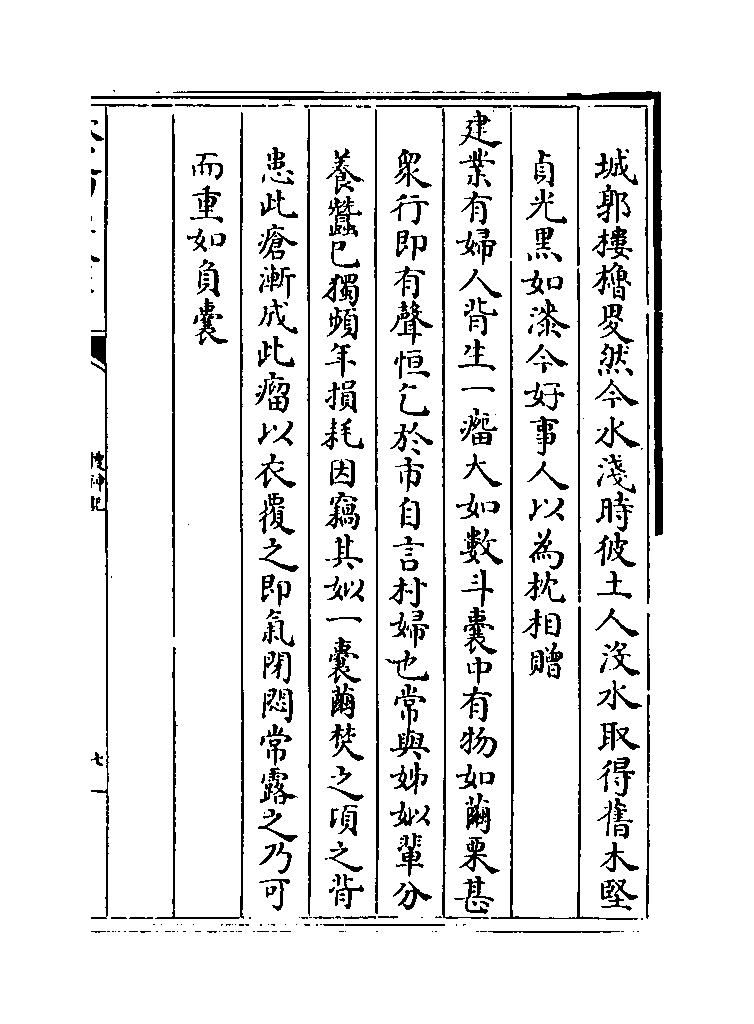 城郭樓櫓畟然今水淺時彼土人沒水取得舊木堅
貞光黑如漆今好事人以為枕相贈
建業有婦人背生一瘤大如數斗囊中有物如繭栗甚
衆行即有聲恒乞於市自言村婦也常與姊姒輩分
養蠶已獨頻年損耗因竊其姒一囊繭焚之頃之背
患此瘡漸成此瘤以衣覆之即氣閉悶常露之乃可
而重如負囊
搜神記
七